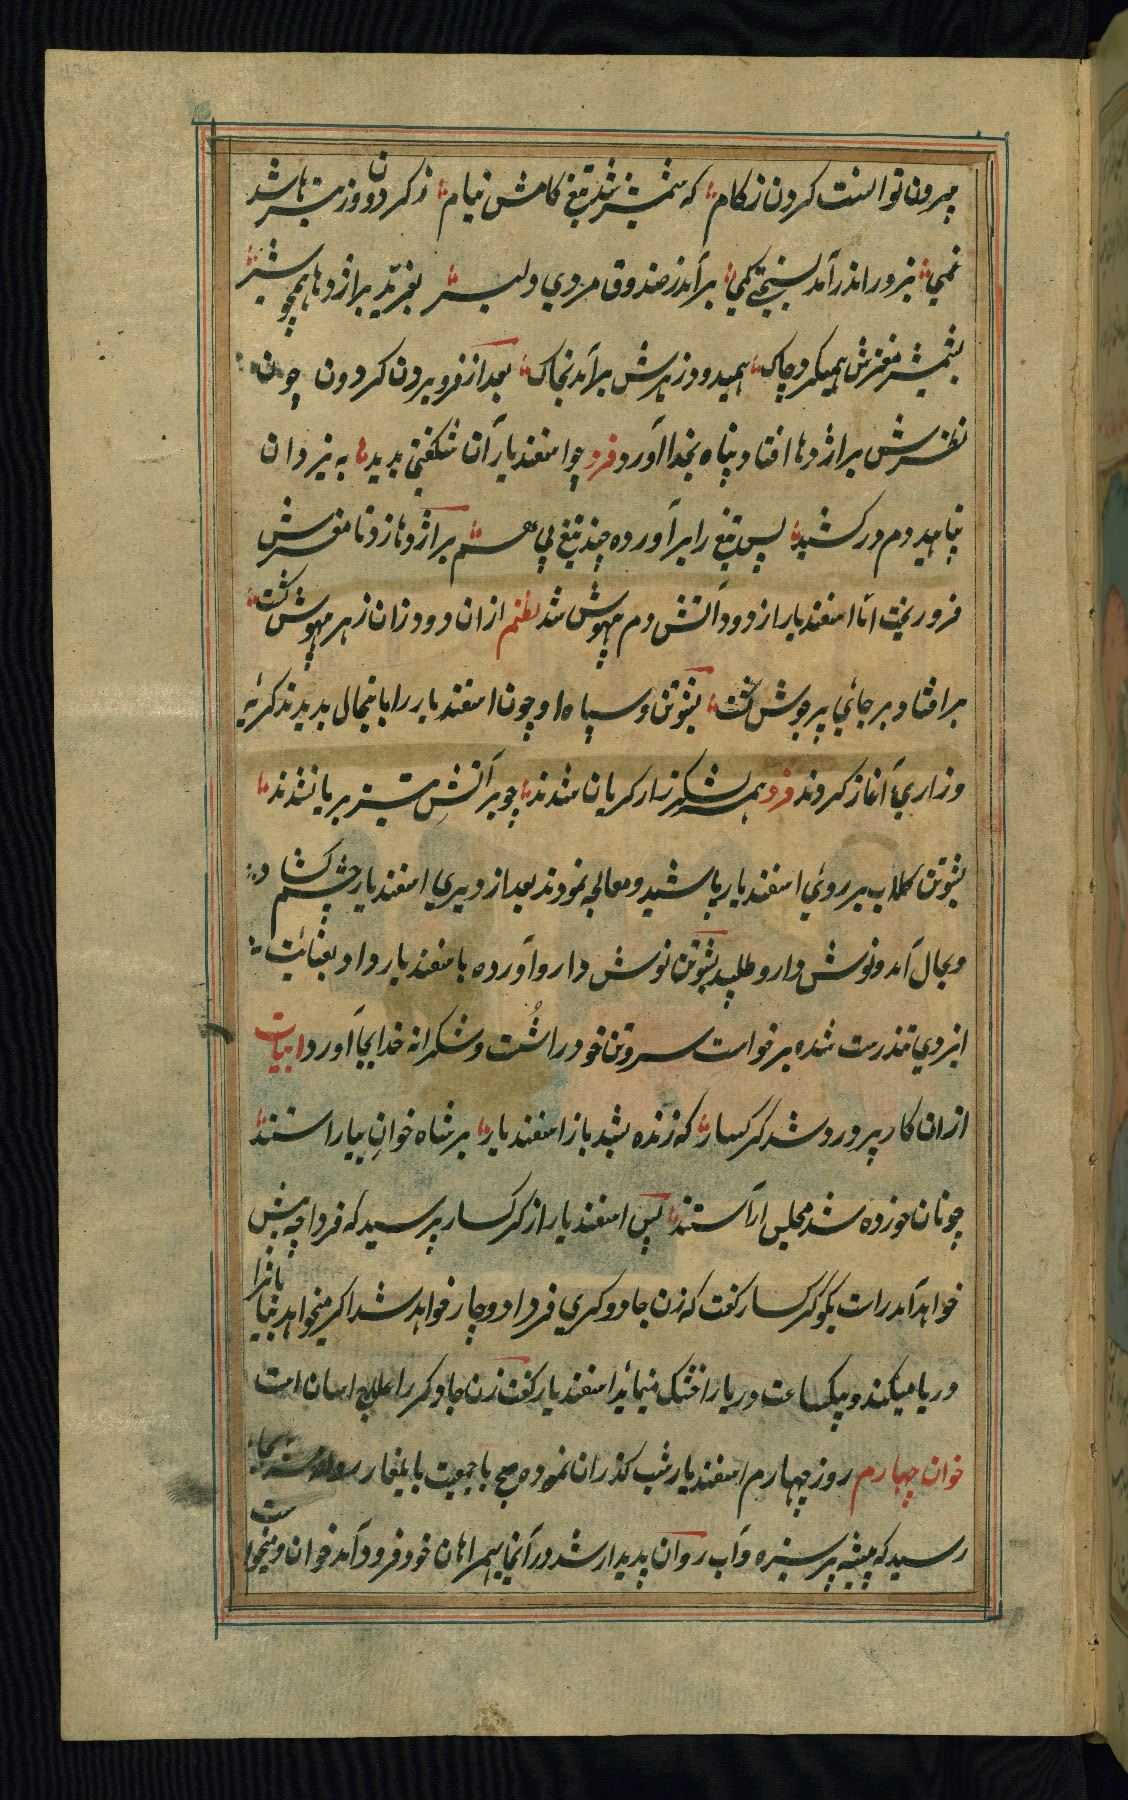 بیرون توانست کردن ز کام که شمشیر شد تیغ کامش نیام ز کردون وز تیرها شد
غمی بزور اندر آمد بسختی کمی برآمد ز صندوق مردی دلیر بغرید بر اژدها همچو شیر
بشمشیر مغزش همیکرد چاک همیدود زهرش برآمد بخاک بعد از فرو بردن کردون چون
نظرش بر اژدها افتاد پناه بخدا آورد فرد چو اسفندیار آن شکفتی بدید به یزدان
پناهید و دم در کشید پس تیغ را برآورده چند تیغ پی هم بر اژدها زد تا مغزش
فرو ریخت اما اسفندیار از دود آتش دم بیهوش شد نظم ازان دود زان زهر بیهوش کشت
برافتاد بر جائی بیهوش کشت بشوتن و سپاه او چون اسفندیار را باینحال بدیدند کریه
و زاری آغاز کردند فرد همه لشکر زار کریان شدند چو بر آتش تیز بریان شدند
بشوتن کلاب بر روی اسفندیار پاشید و معالجه نمودند بعد از دیری اسفندیار چشم کشاد
و بحال آمد و نوش دارو طلبید بشوتن نوش دارو آورده باسفندیار داد بعنایت
ایزدی تندرست شده برخواست سر و تن خود را شست و شکرانه خدا بجا آورد ابیات
ازان کار پر درد شد کرکسار که زنده بشد باز اسفندیار بر شاه خوان بیاراستند
چو نان خورده شد مجلس آراستند پس اسفندیار از کرکسار پرسید که فردا چه پیش
خواهد آمد راست بکو کرکسار کفت که زن جادوکری فردا دوچار خواهد شد اکر میخواهد بیابانرا
دریا میکند و بیکساعت دریا را خشک مینماید اسفندیار کفت زن جادوکر را علاج اسان است
خوان چهارم روز چهارم اسفندیار شب کذران نموده صبح با جمعیت بایلغار روانه شد بجای
رسید که بیشه پر سبزه و آب روان پدیدار شد در آنجا بهمراهان خود فرود آمد خوان و میخواست